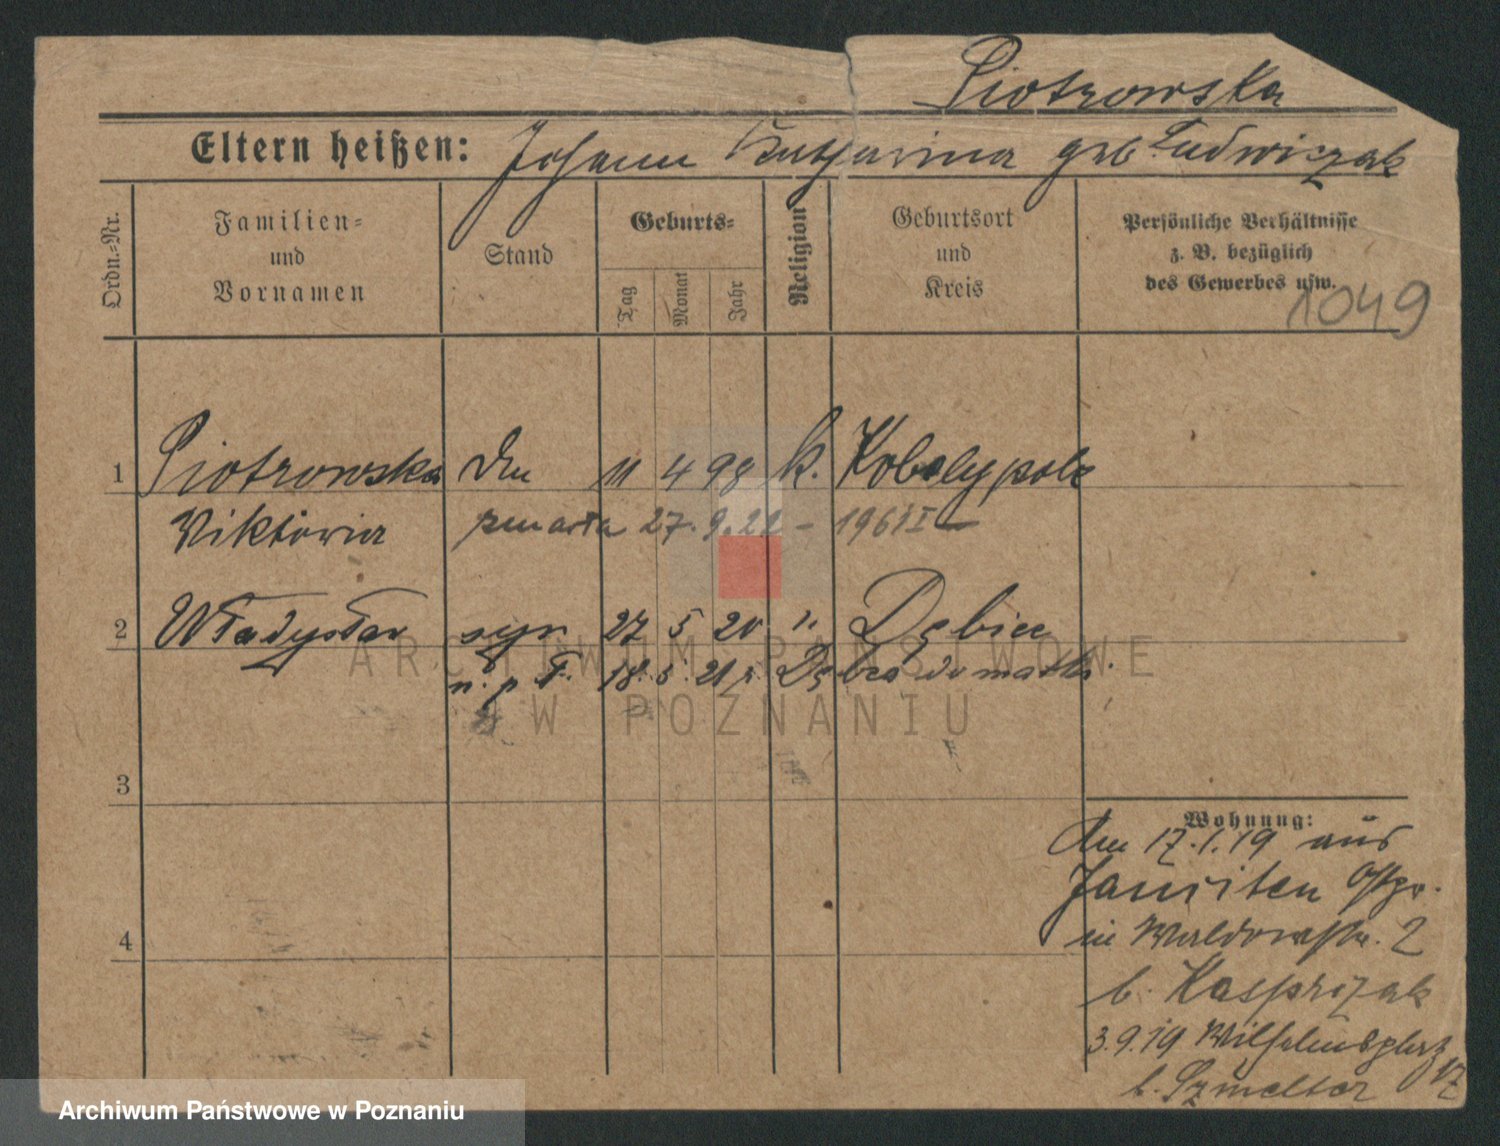 Piotrowska
Eltern heißen: Johann Katharina geb Ludwiczak
Ordn.=Nr.
Familien=
und
Vornamen
Stand
Geburts=
Tag
Monat
Jahr
Religion
Geburtsort
und
Kreis
Persönliche Verhältnisse
z. B. bezüglich
des Gewerbes usw.
1049
1 Piotrowska 11 4 98 k. Kobylepole
Viktoria zmarła 27.9.22 –
2 Władysław syn 27 5 20 " Dębiec
18. 5. 21 r. do matki
3
4
Wohnung:
Am 17.1.19 aus
Ostpr.
in Waldowstr. 2
b. Kasprzak
3.9.19 Wilhelmsplatz 17
b. Szmelter
ARCHIWUM PAŃSTWOWE
W POZNANIU
Archiwum Państwowe w Poznaniu